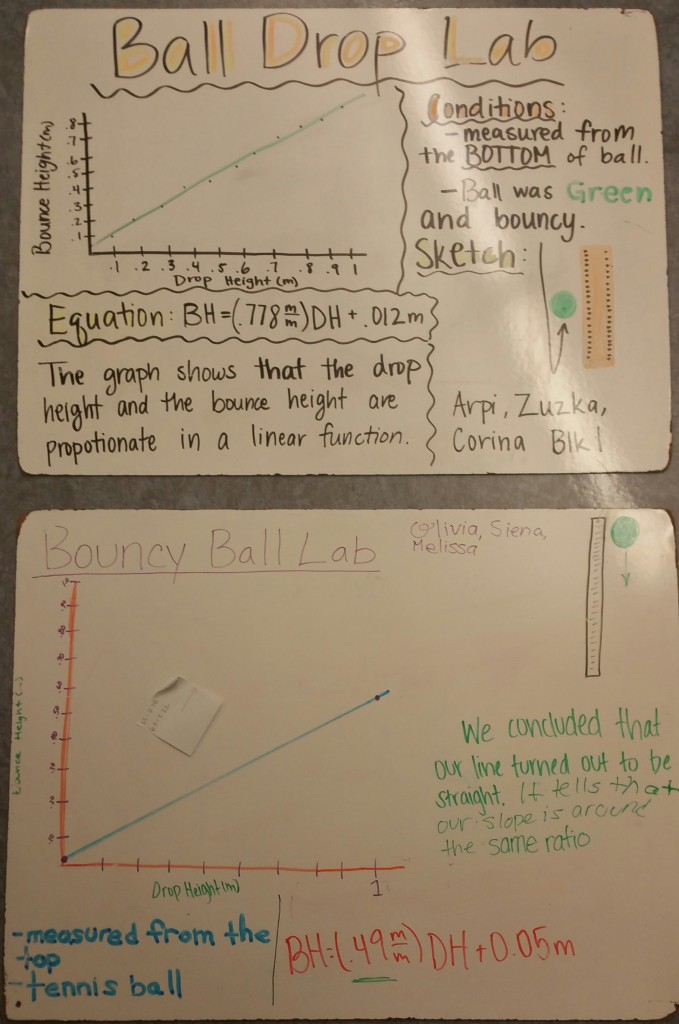 Ball Drop Lab
Bounce Height(m)
.8
.7
.6
.5
.4
.3
.2
.1
.1 .2 .3 .4 .5 .6 .7 .8 .9 1
Drop Height(m)
Conditions:
- measured from
the BOTTOM of ball.
- Ball was Green
and bouncy.
Sketch:
Equation: BH=(.778 m/m)DH + .012m
The graph shows that the drop
height and the bounce height are
propotionate in a linear function.
Arpi, Zuzka,
Corina Blk 1
Bouncy Ball Lab
Olivia, Siena,
Melissa
Height
Drop Height(m)
1
We concluded that
our line turned out to be
straight. It tells that
our slope is around
the same ratio
-measured from the
top
-tennis ball
BH=(.49 m/m)DH+0.05m